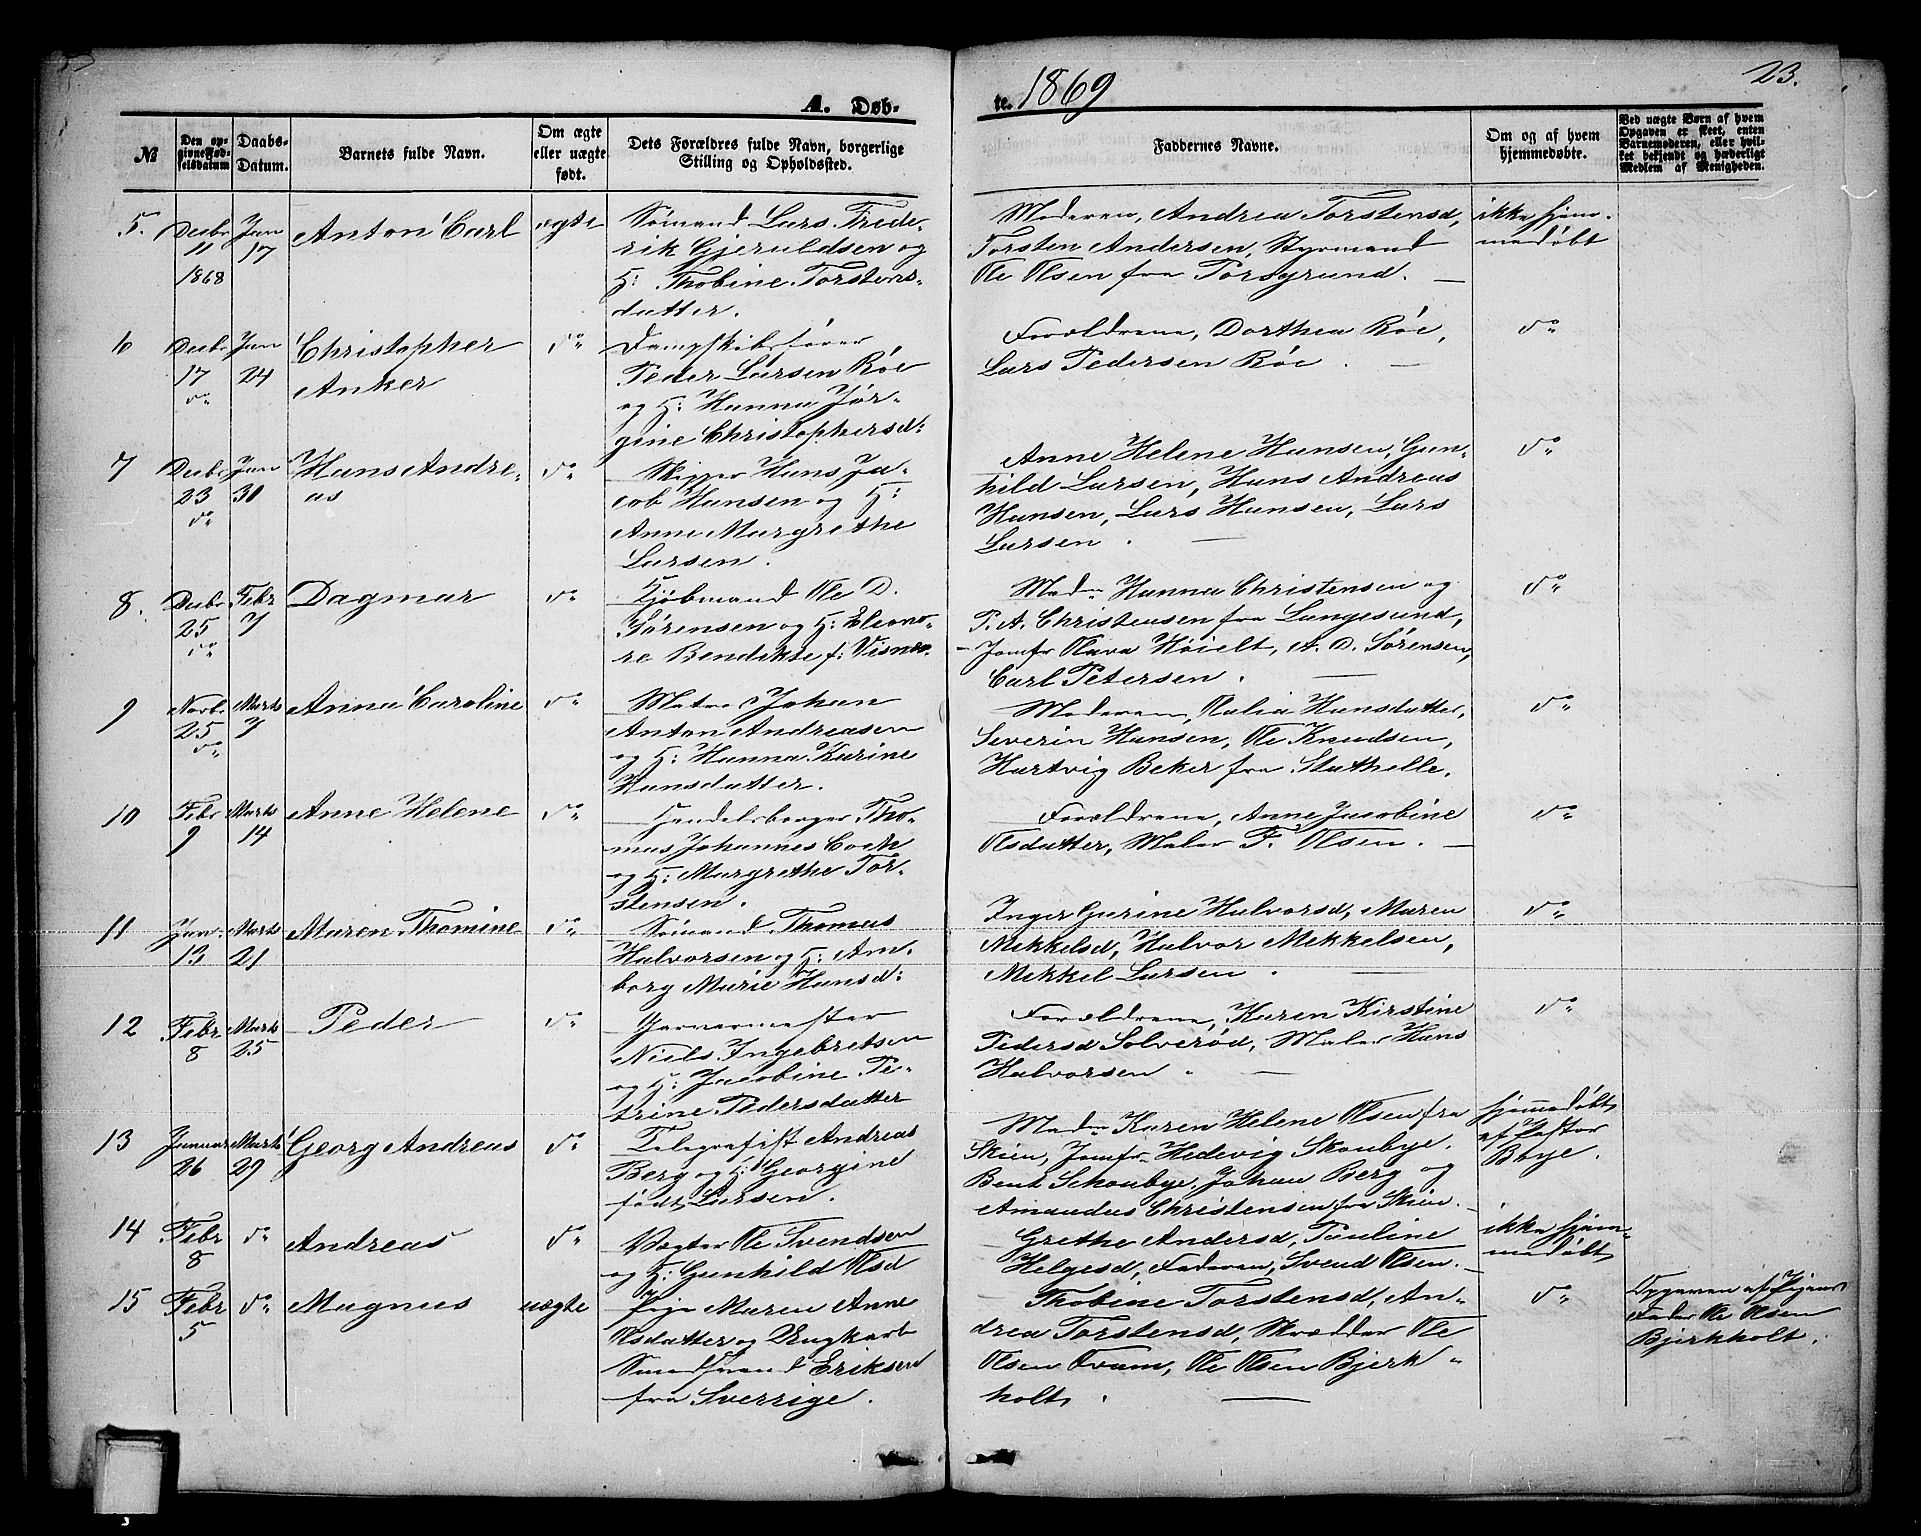 A. Døb-
te. 1869
23.
№
Den opgivne Fødselsdatum
Daabs-Datum.
Barnets fulde Navn.
Om ægte eller uægte født.
Dets Forældres fulde Navn, borgerlige Stilling og Opholdssted.
Faddernes Navne.
Om og af hvem hjemmedøbte.
Ved uægte Børn af hvem Opgaven er skeet, enten Barnemoderen, eller hvilket bekjendt og hæderligt Medlem af Menigheden.
5. Decbr 11 1868
Jan 17
Anton Carl
ægte
Sømand Lars Frede-
rik Gjeruldsen og
H: Thobine Torstens-
datter.
Moderen, Andrea Torstensd,
Torsten Andersen, Styrmand
Ole Olsen fra Porsgrund. —
ikke hjem-
medøbt
6 Decbr 17 do
Jan 24
Christopher
Anker
do
Dampskibsfører
Peder Larsen Röe
og H: Hanna Jør-
gine Christophersd:
Forældrene, Dorthea Röe,
Lars Pedersen Röe. —
do
7 Decbr 23 do
Jan 30
Hans Andre-
as
do
Skipper Hans Ja-
cob Hansen og H:
Anne Margrethe
Larsen.
Anne Helene Hansen, Gun-
hild Larsen, Hans Andreas
Hansen, Lars Hansen, Lars
Larsen. —
do
8. Decbr 25 do
Febr 7
Dagmar
do
Kjøbmand Ole D.
Sørensen og H: Eleono-
re Bendikte f:
Mad: Hanna Christensen og
P. A. Christensen fra Langesund,
Jomfr A. D. Sørensen,
Carl Petersen. —
do
9 Novbr 25 do
Marts 7
Anna Caroline
do
Johan
Anton Andreasen
og H: Hanna Karine
Hansdatter.
Moderen, Hansdatter,
Severin Hansen, Ole Knudsen,
Hartvig Beker fra Stathelle.
do
10 Febr 9
Marts 14
Anne Helene
do
Handelsborger Tho-
mas Johannes Coch
og H: Margrethe Tor-
stensen.
Forældrene, Anne Jacobine
Olsdatter, Maler F. Olsen. —
do
11 Jan. 13
Marts 21
Maren Thomine
do
Sømand Thomas
Halvorsen og H: An-
borg Marie Hansd:
Inger Gurine Halvorsd, Maren
Mekkelsd, Halvor Mekkelsen,
Mekkel Larsen. —
do
12 Febr 8
Marts 25
Peder
do
Garvermester
Niels Ingebretsen
og H: Jacobine Pe-
trine Pedersdatter
Forældrene, Karen Kirstine
Pedersd Solverød, Maler Hans
Halvorsen. —
do
13 Januar 26
Marts 29
Georg Andreas
do
Telegrafist Andreas
Berg og H: Georgine
født Larsen.
Mad: Karen Helene Olsen fra
Skien, Jomfr: Hedevig Skoubye.
Bent Schoubye, Johan Berg og
Amandus Christensen fra Skien. —
hjemmedøbt
af Pastor
14 Febr 8
do
Andreas
do
Vægter Ole Svendsen
og H: Gunhild Olsd
Grethe Andersd, Pauline
Helgesd, Faderen, Svend Olsen. —
ikke hjem-
medøbt
15 Febr 5
do
Magnus
uægte
Pige Maren Anne
Olsdatter og Ungkarl
Smedsvend Eriksen
fra Sverrige.
Thobine Torstensd, An-
drea Torstensd, Skrædder Ole
Olsen Fram, Ole Olsen Bjerk-
holt. —
do
Opgaven af Pigens
Fader Ole Olsen
Bjerkholt.